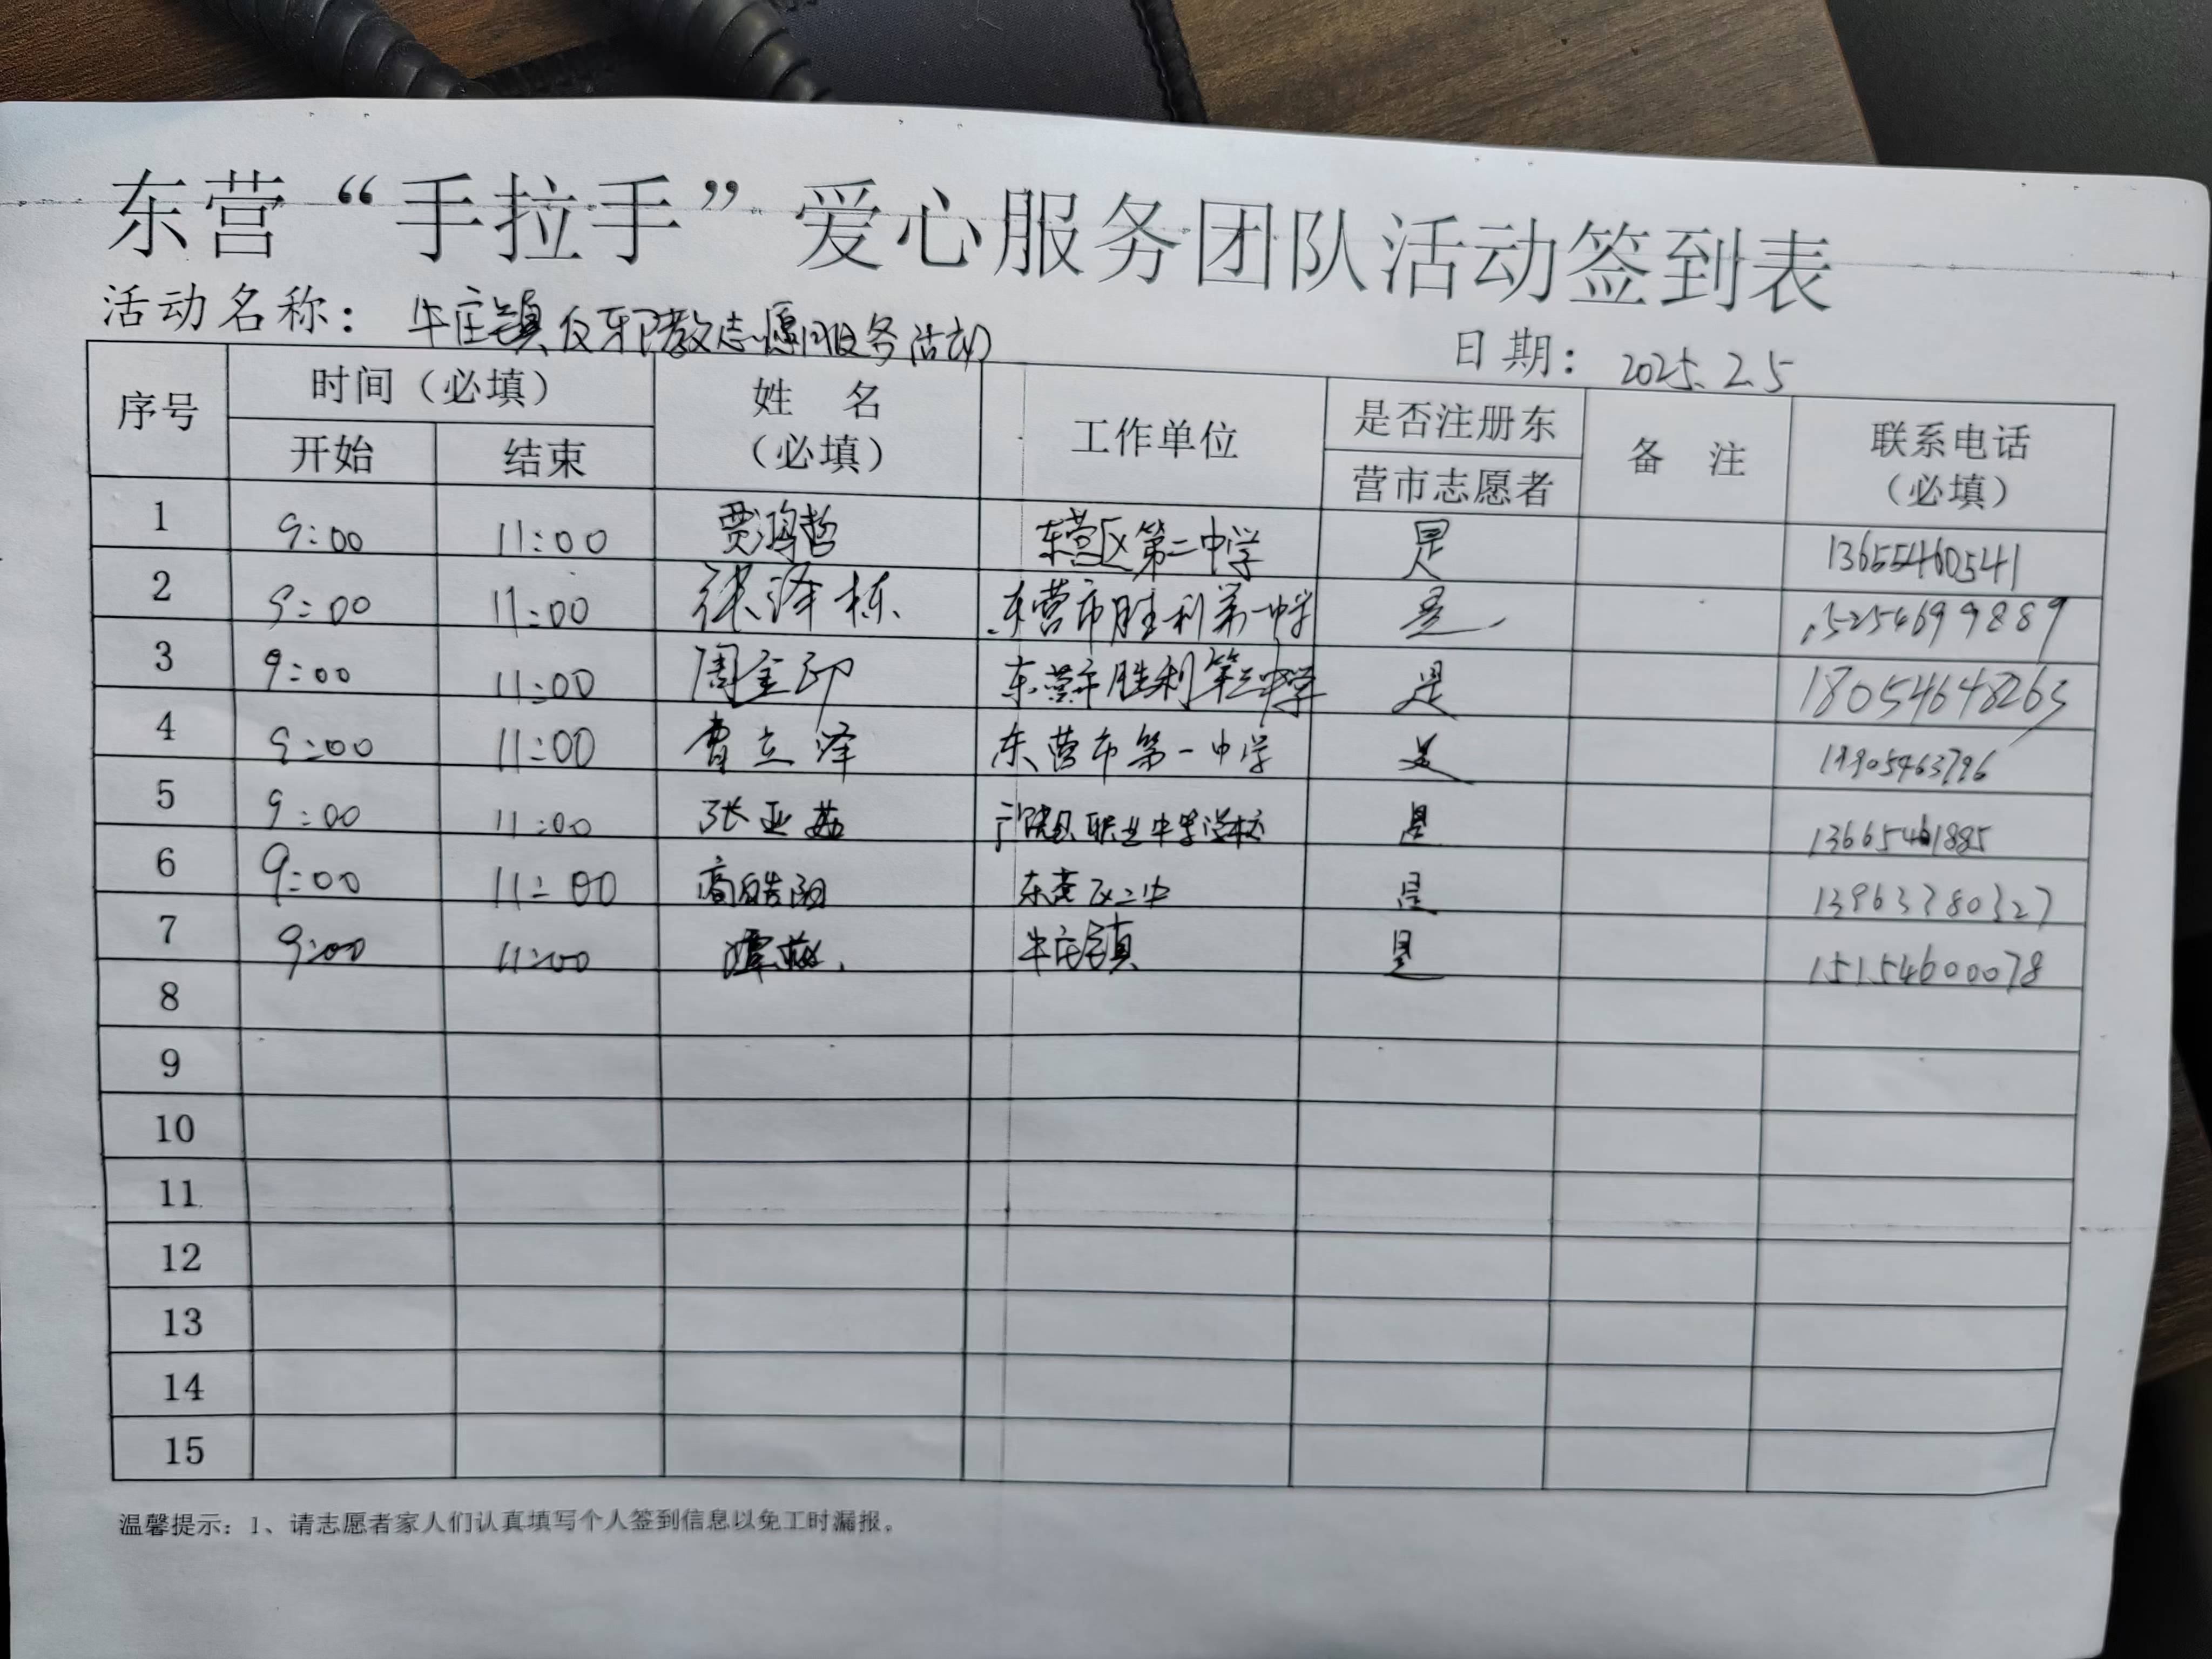 东营“手拉手”爱心服务团队活动签到表
活动名称：牛庄镇反邪教志愿服务活动
日期：2025.2.5
序号 时间（必填） 姓 名（必填） 工作单位 是否注册东营市志愿者 备 注 联系电话（必填）
开始 结束
1 9:00 11:00 贾鸿哲 东营区第二中学 是 13655460541
2 9:00 11:00 张泽栋 东营市胜利第一中学 是 15254699889
3 9:00 11:00 周金印 东营市胜利第三中学 是 18054648263
4 9:00 11:00 曹立泽 东营市第一中学 是 19905463796
5 9:00 11:00 张亚茹 职业中学学校 是
6 9:00 11:00 高皓阳 东营区二中 是 13963780327
7 9:00 11:00 牛庄镇 是 15154600078
8
9
10
11
12
13
14
15
温馨提示：1、请志愿者家人们认真填写个人签到信息以免工时漏报。